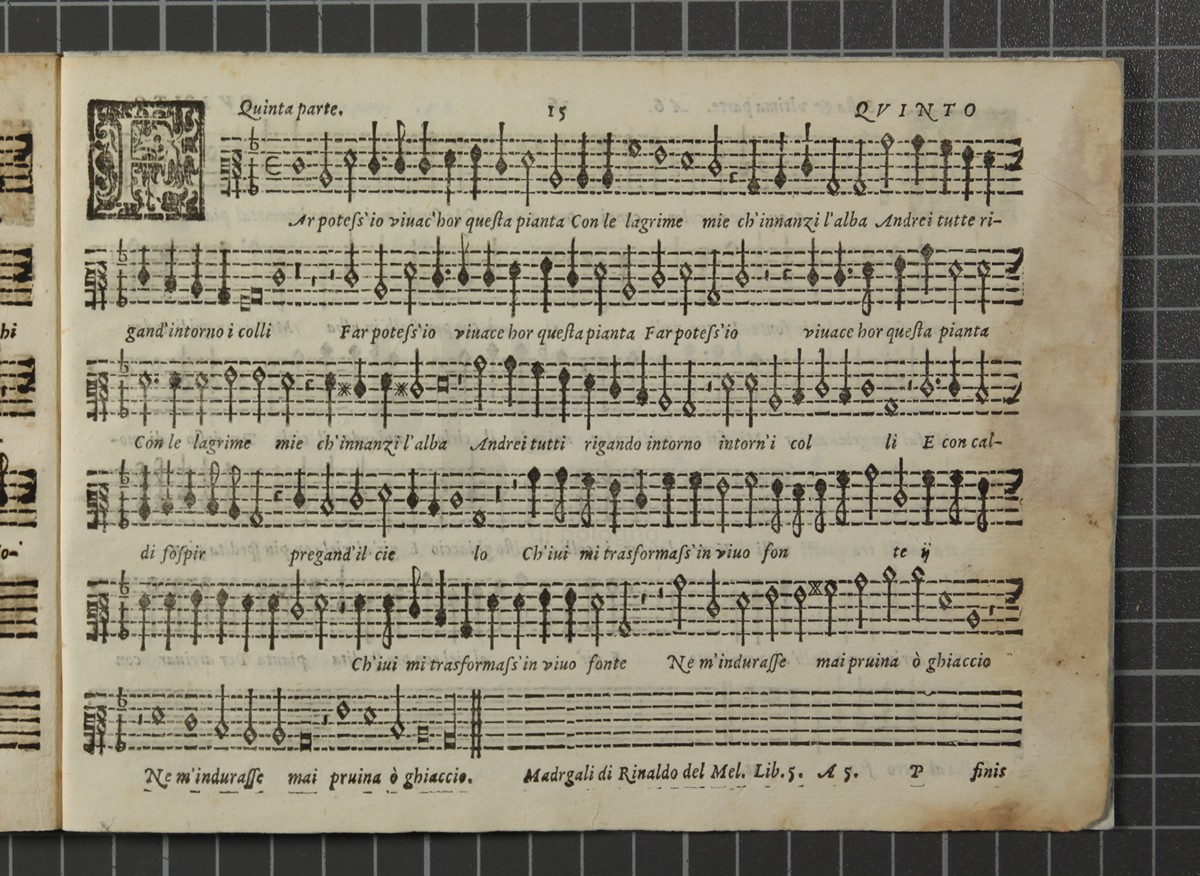 Quinta parte. 15 QVINTO
FAr potess'io viuac'hor questa pianta Con le lagrime mie ch'innanzi l'alba Andrei tutte ri-
gand'intorno i colli Far potess'io viuace hor questa pianta Far potess'io viuace hor questa pianta
Con le lagrime mie ch'innanzi l'alba Andrei tutti rigando intorno intorn'i col li E con cal-
di sospir pregand'il cie lo Ch'iui mi trasformass'in viuo fon te ij
Ch'iui mi trasformass'in viuo fonte Ne m'indurasse mai pruina ò ghiaccio
Ne m'indurasse mai pruina ò ghiaccio. Madrgali di Rinaldo del Mel. Lib. 5. A 5. P finis